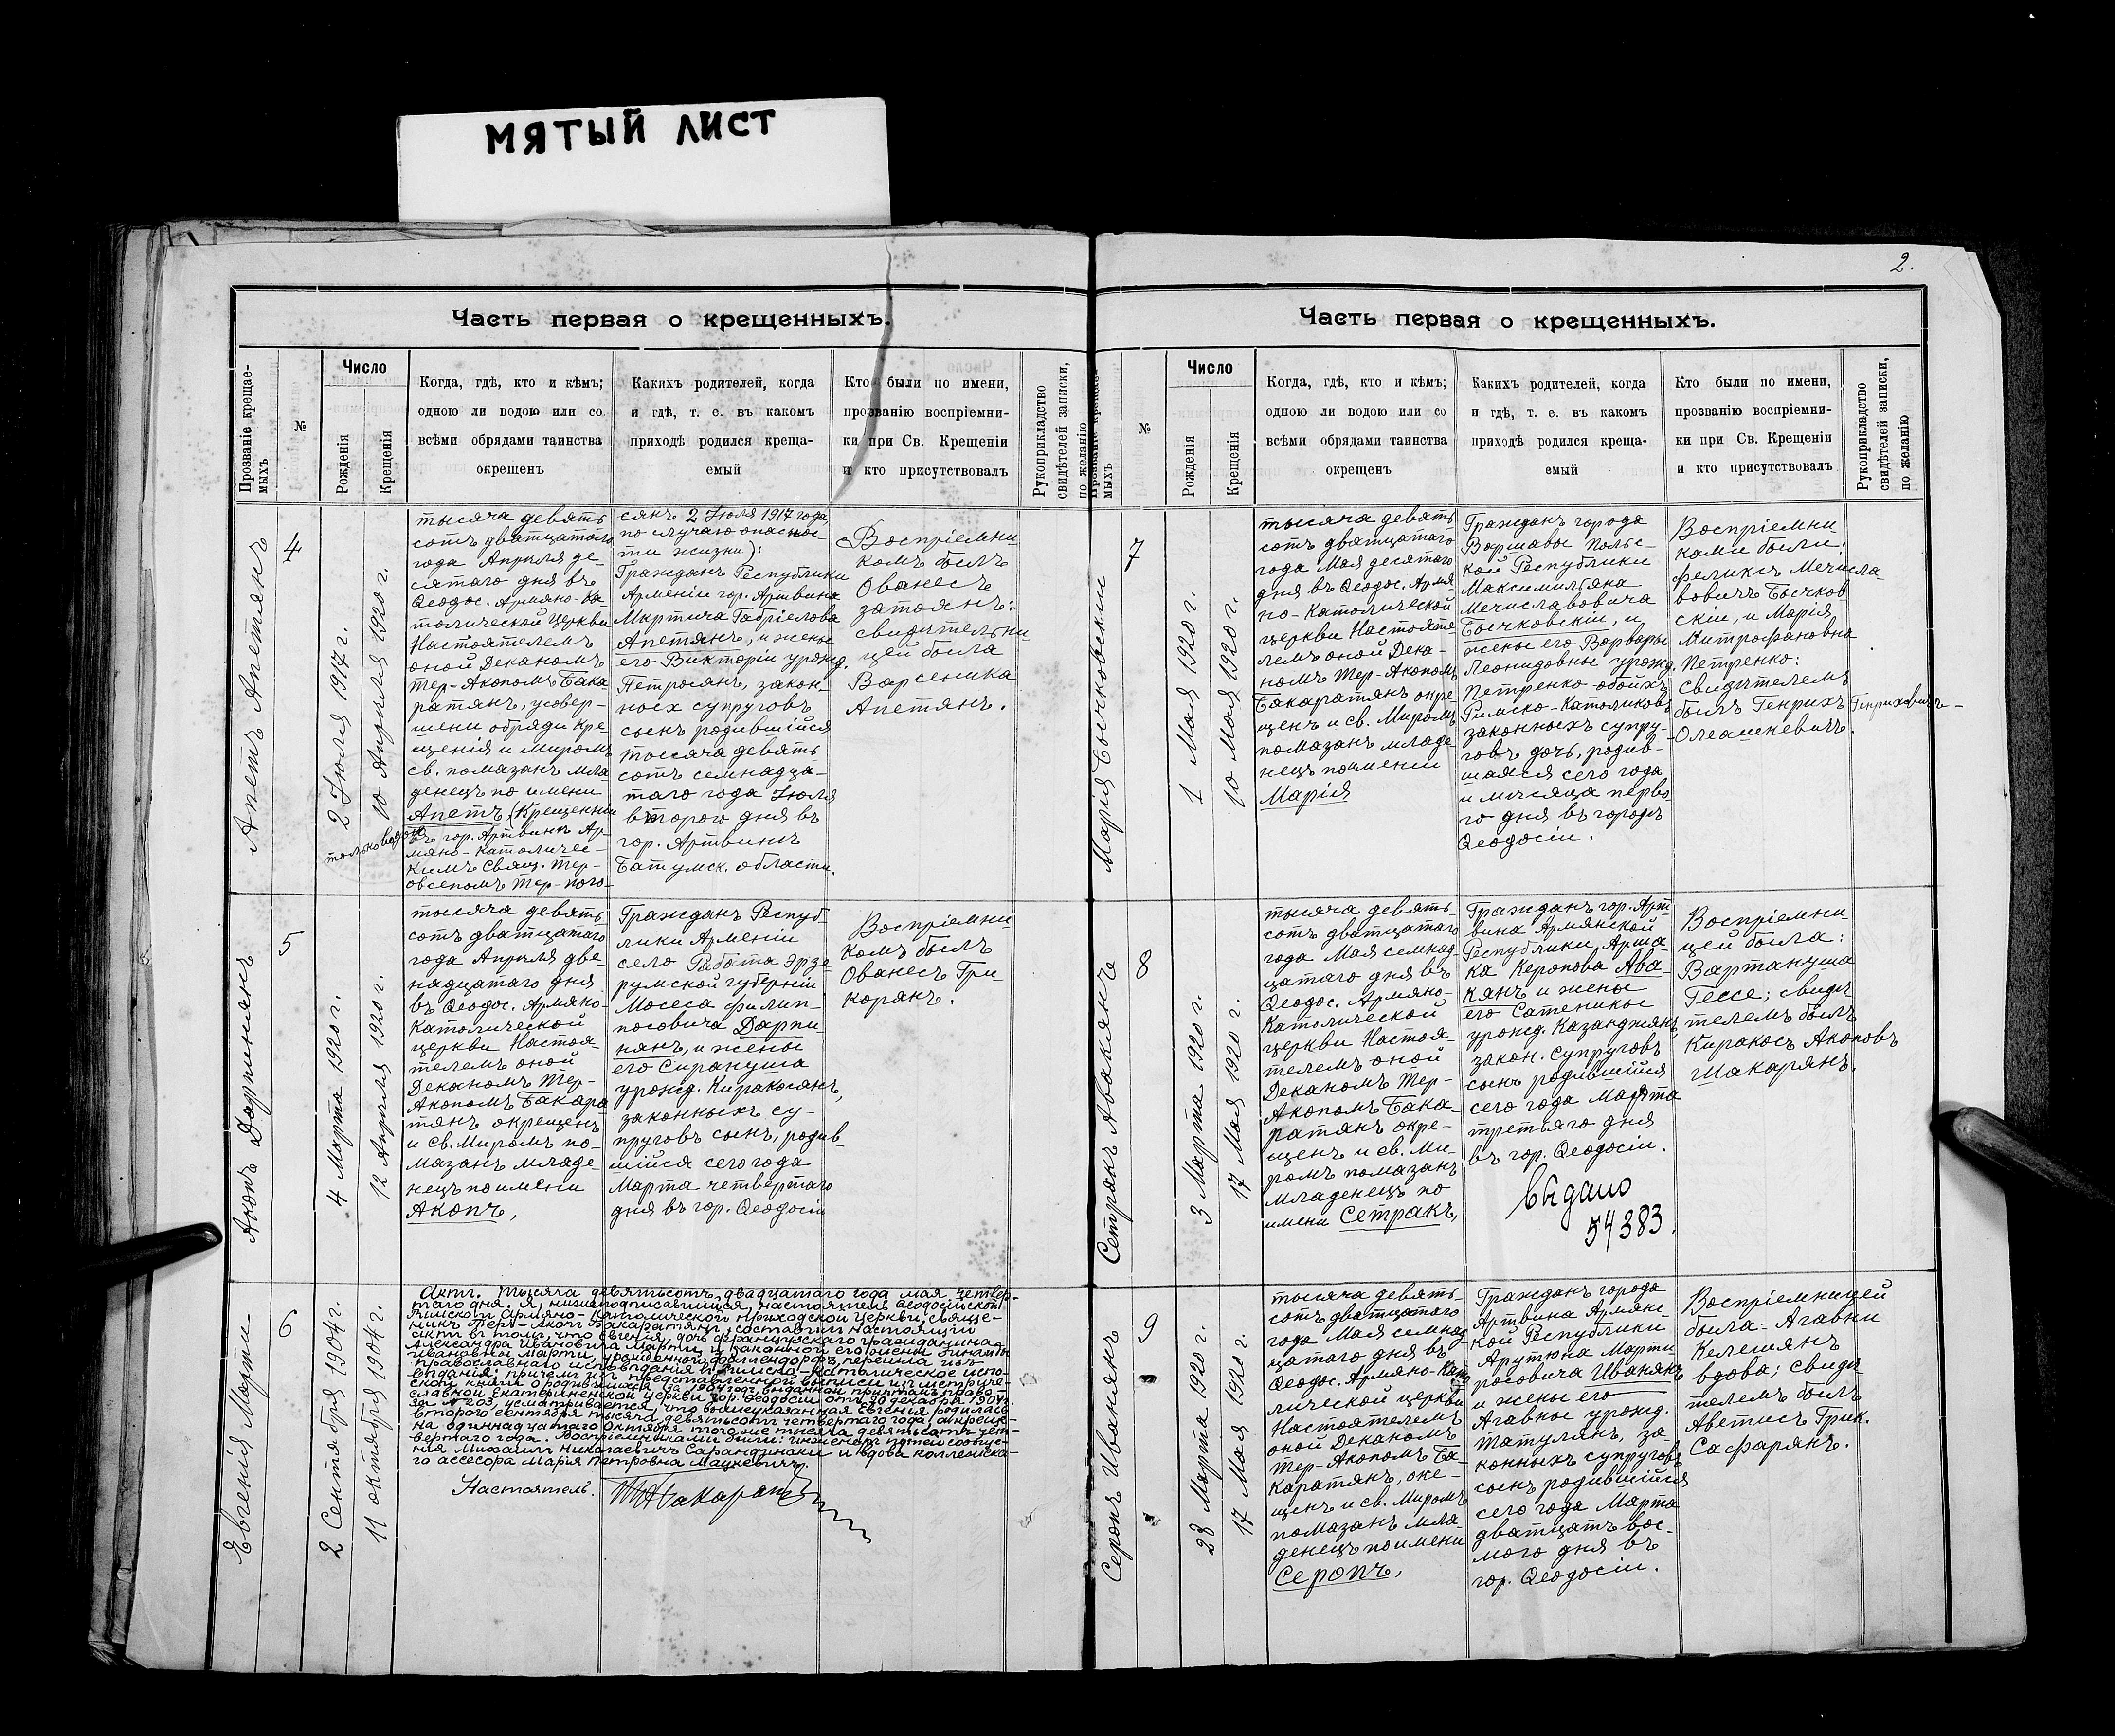 МЯТЫЙ ЛИСТ
Часть первая о крещенныхъ.
Прозваніе крещае-
мыхъ
№
Число
Рожденія
Крещенія
Когда, гдѣ, кто и кѣмъ;
одною ли водою или со
всѣми обрядами таинства
окрещенъ
Какихъ родителей, когда
и гдѣ, т. е. въ какомъ
приходѣ родился креща-
емый
Кто были по имени,
прозванію воспріемни-
ки при Св. Крещеніи
и кто присутствовалъ
Рукоприкладство
свидѣтелей записки,
по желанію
Апетъ Апетянъ
4
2 Іюля 1917 г.
10 Апрѣля 1920 г.
тысяча девять
сотъ дватцатого
года Апрѣля де-
сятаго дня въ
Ѳеодос. Армяно-Ка-
толической Церкви
Настоятелемъ
оной Деканомъ
Тер-Акопомъ Бака-
ратянъ, усовер-
шени обряди кре-
щенія и миромъ
св. помазанъ мла-
денецъ по имени
Апетъ, (Крещенный
только водою
въ гор. Артвинѣ Ар-
мяно-католичес-
кимъ Свящ. Тер-
овсепомъ Тер-пого-
сянъ 2 Іюля 1917 года,
по случаю опаснос-
ти жизни):
Гражданъ Республики
Арменіи гор. Артвина
Мкртича Габріелова
Апетянъ, и жены
его Викторіи урожд.
Петросянъ, закон-
ныхъ супруговъ
сынъ родившійся
тысяча девять
сотъ семнадца-
таго года Іюля
второго дня въ
гор. Артвинѣ
Батумск. области.
Воспріемни-
комъ былъ
Ованесъ
затоянъ:
свидѣтельни-
цей была
Варсеника
Апетянъ.
Акопъ Дарпинянъ
5
4 Марта 1920 г.
12 Апрѣля 1920 г.
тысяча девять
сотъ дватцатаго
года Апрѣля две-
надцатаго дня
въ Ѳеодос. Армяно-
Католической
церкви Настоя-
телемъ оной
Деканомъ Тер-
Акопомъ Бакара
тянъ окрещенъ
и св. Миромъ по-
мазанъ младе-
нецъ по имени
Акопъ,
Гражданъ Респуб
лики Арменіи
село Рабата Эрзе-
румской губерніи
Мосеса Филип-
посовича Дарпи-
нянъ, и жены
его Сирануша
урожд. Киракосянъ,
законныхъ су-
пруговъ сынъ, родив-
шійся сего года
Марта четвертаго
дня въ гор. Ѳеодосіи
Воспріемни-
комъ былъ
Ованесъ Гри-
корянъ.
Евгенія Марти
6
2 Сентября 1904 г.
11 октября 1904 г.
Актъ. Тысяча девятьсотъ двадцатаго года мая четвер-
таго дня. Я, нижеподписавшійся, настоятель Ѳеодосійской
Римской Армяно-Католической приходской Церкви, Свяще-
никъ Теръ-Акопъ Бакаратянъ, составилъ настоящій
актъ въ томъ, что Евгенія, дочь французскаго гражданина
Александра Ивановича Марти и законной его жены Зинаиды
Ивановны Марти, урожденной Фаллендорфъ, перешла изъ
православнаго исповѣданія въ Римско-католическое испо-
вѣданія, причемъ изъ представленной выписи изъ метриче-
ской книги о родившихся за 1904 годъ, выданной причтомъ право-
славной Екатерининской церкви гор. Ѳеодосіи отъ 30 декабря 1904 г.
за № 203, усматривается, что вышеуказанная Евгенія родилась
второго сентября тысяча девятьсотъ четвертаго года, а креще-
на одиннадцатаго Октября того же тысяча девятьсотъ чет-
вертаго года. Воспріемниками были: инженеръ путей сообще-
нія Михаилъ Николаевичъ Сарандинаки и вдова коллежска-
го ассесора Марія Петровна Мацкевичъ.
Настоятель.
2.
Часть первая о крещенныхъ.
мыхъ
№
Число
Рожденія
Крещенія
Когда, гдѣ, кто и кѣмъ;
одною ли водою или со
всѣми обрядами таинства
окрещенъ
Какихъ родителей, когда
и гдѣ, т. е. въ какомъ
приходѣ родился креща-
емый
Кто были по имени,
прозванію воспріемни-
ки при Св. Крещеніи
и кто присутствовалъ
Рукоприкладство
свидѣтелей записки,
по желанію
Марія Бычковскій
7
1 Мая 1920 г.
10 Мая 1920 г.
тысяча девять
сотъ дватцатаго
года Мая десятаго
дня въ Ѳеодос. Армя
но-Католической
церкви Настояте-
лемъ оной Дека-
номъ Тер-Акопомъ
Бакаратянъ окре-
щенъ и св. Миромъ
помазанъ младе-
нецъ по имени
Марія
Гражданъ города
Варшавы Поль-
ской Республики
Максимильяна
Мечиславовича
Бычковскій, и
жены его Варвары
Леонидовны урожд.
Петренко обойхъ
Римско-Католиковъ
законныхъ супру-
говъ дочь, родив-
шаяся сего года
и мѣсяца перво-
го дня въ городѣ
Ѳеодосіи.
Воспріемни
ками были:
феликсъ Мечисла-
вовичъ Бычков
скій, и Марія
Митрофановна
Петренко:
Свидѣтелемъ
былъ Генрихъ Генриховичъ
Олеашкевичъ.
Сетракъ Авакянъ
8
3 Марта 1920 г.
17 Мая 1920 г.
тысяча девять-
сотъ двятцатаго
года Мая семнад-
цатаго дня въ
Ѳеодос. Армяно-
Католической
церкви Настоя-
телемъ оной
Деканомъ Тер-
Акопомъ Бака-
ратянъ окре-
щенъ и св. Ми-
ромъ помазанъ
младенецъ по
имени Сетракъ,
Гражданъ гор. Арт-
вина Армянской
Республики, Арша-
ка Керопова Ава-
кянъ и жены
его Сатеники
урожд. Казанджянъ,
закон. супруговъ
сынъ родившійся
сего года Марта
третьяго дня
въ гор. Ѳеодосіи.
выдано
54383.
Воспріемни-
цей была:
Вартануша
Гессе; свидѣ
телемъ былъ
Киракосъ Акоповъ
Шакарянъ.
Серопъ Иванянъ
9
28 Марта 1920 г.
17 Мая 1920 г.
тысяча девять-
сотъ двятцатаго
года Мая семнад-
цатаго дня въ
Ѳеодос. Армяно-Като
лической церкви
Настоятелемъ
оной Деканомъ
Тер-Акопомъ Ба-
каратянъ, окре-
щенъ и св. Миромъ
помазанъ мла-
денецъ по имени
Серопъ,
Гражданъ города
Артвина Армянс-
кой Республики
Арутюна Марти
росовича Иванянъ
и жены его
Агавны урожд.
Татулянъ, за-
конныхъ супруговъ
сынъ родившійся
сего года Марта
дватцать вось-
мого дня въ
гор. Ѳеодосіи.
Воспріемницей
была = Агавни
Келешянъ
вдова; свидѣ
телемъ былъ
Аветисъ Грик.
Сафарянъ.